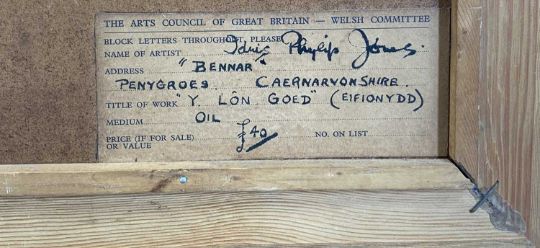 THE ARTS COUNCIL OF GREAT BRITAIN — WELSH COMMITTEE
BLOCK LETTERS THROUGHOUT, PLEASE
NAME OF ARTIST Idris Phylip Jones.
ADDRESS "BENNAR"
PENYGROES CAERNARVONSHIRE.
TITLE OF WORK "Y LÔN GOED" (EIFIONYDD)
MEDIUM OIL
PRICE (IF FOR SALE) £40 NO. ON LIST
OR VALUE